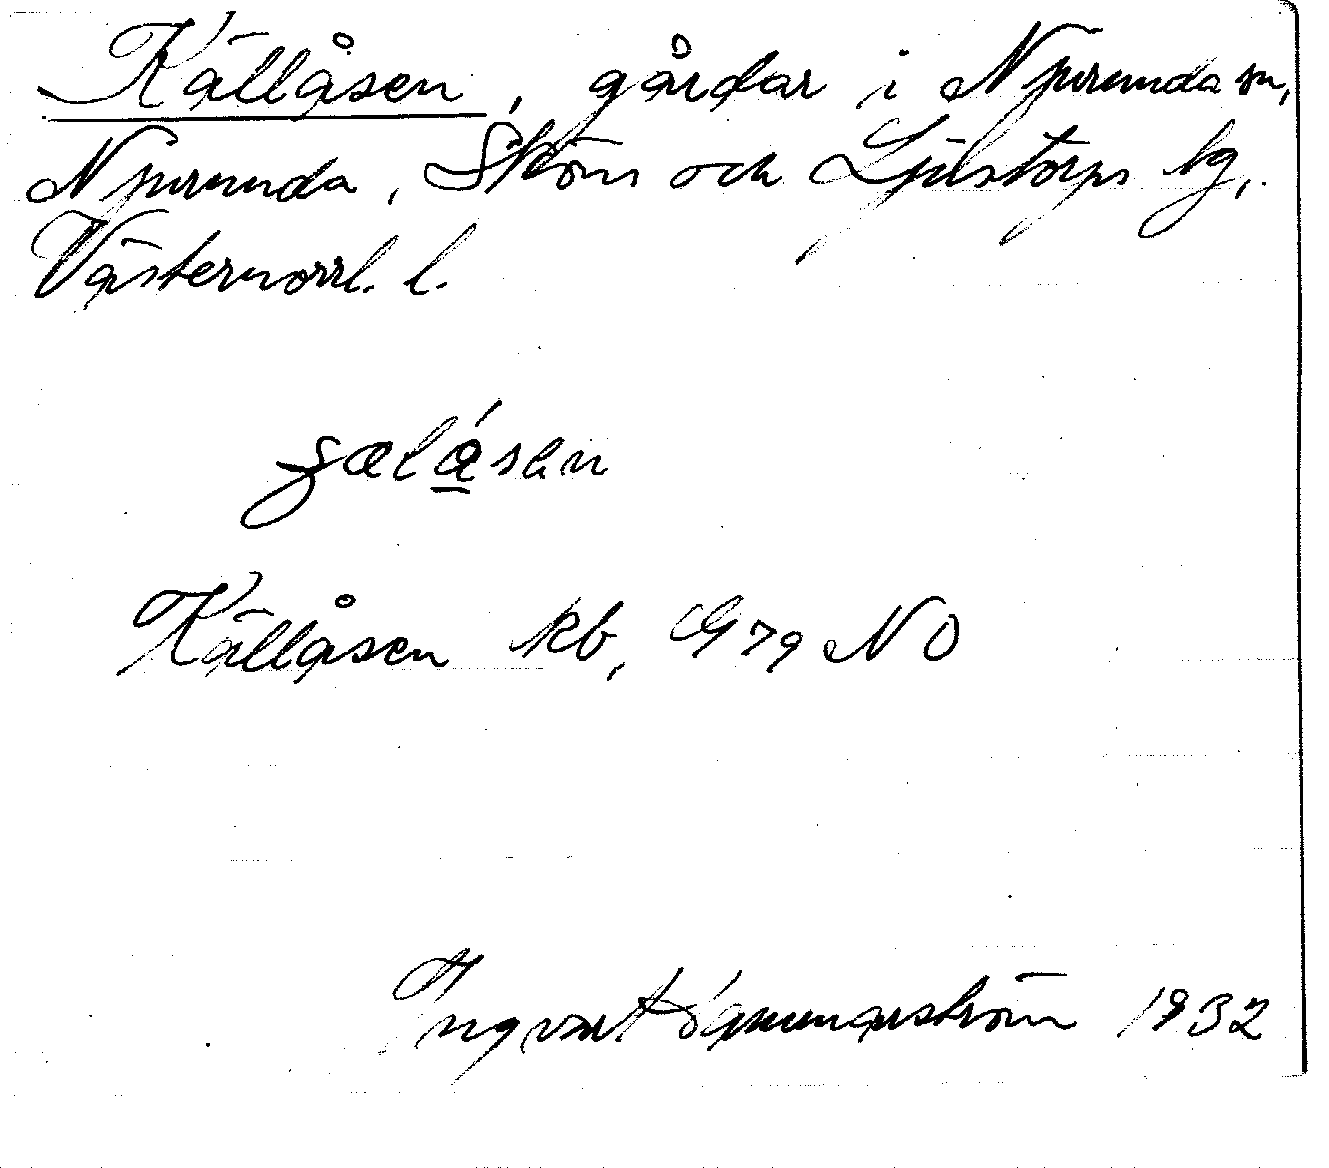 Källåsen, gårdar i Njurunda sn,
Njurunda, Sköns och Ljustorps tg,
Västernorrl. l.
Källåsen kb, G 79 NO
Ingvar Hammarström 1932